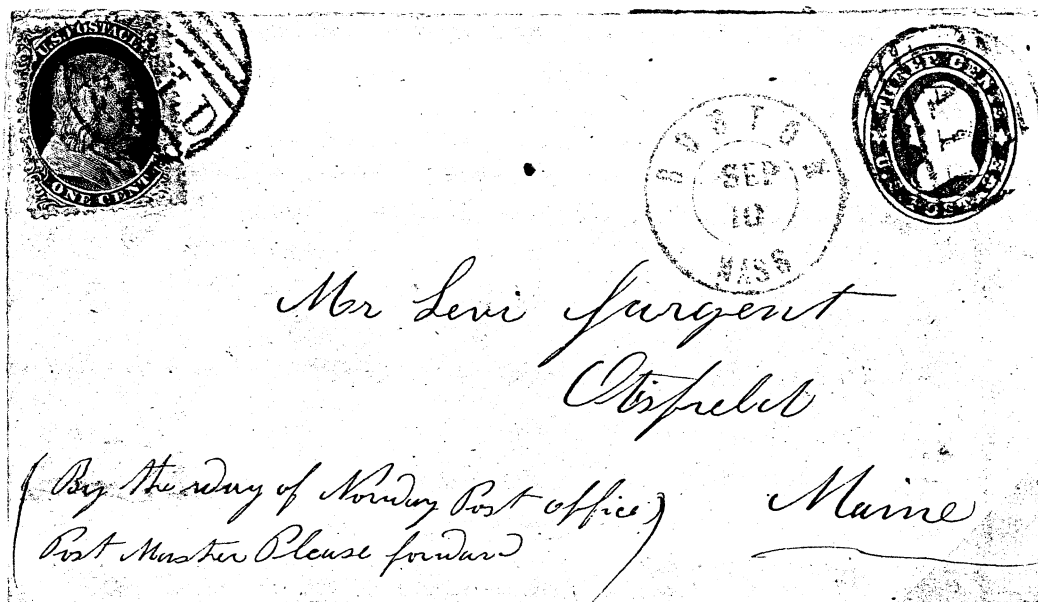 U.S. POSTAGE
ONE CENT
PAID
BOSTON
SEP
10
MASS
THREE CENTS
U.S. POSTAGE
Mr Levi Sargent
Otisfield
Maine
(By the way of Norway Post office)
Post Master Please forward